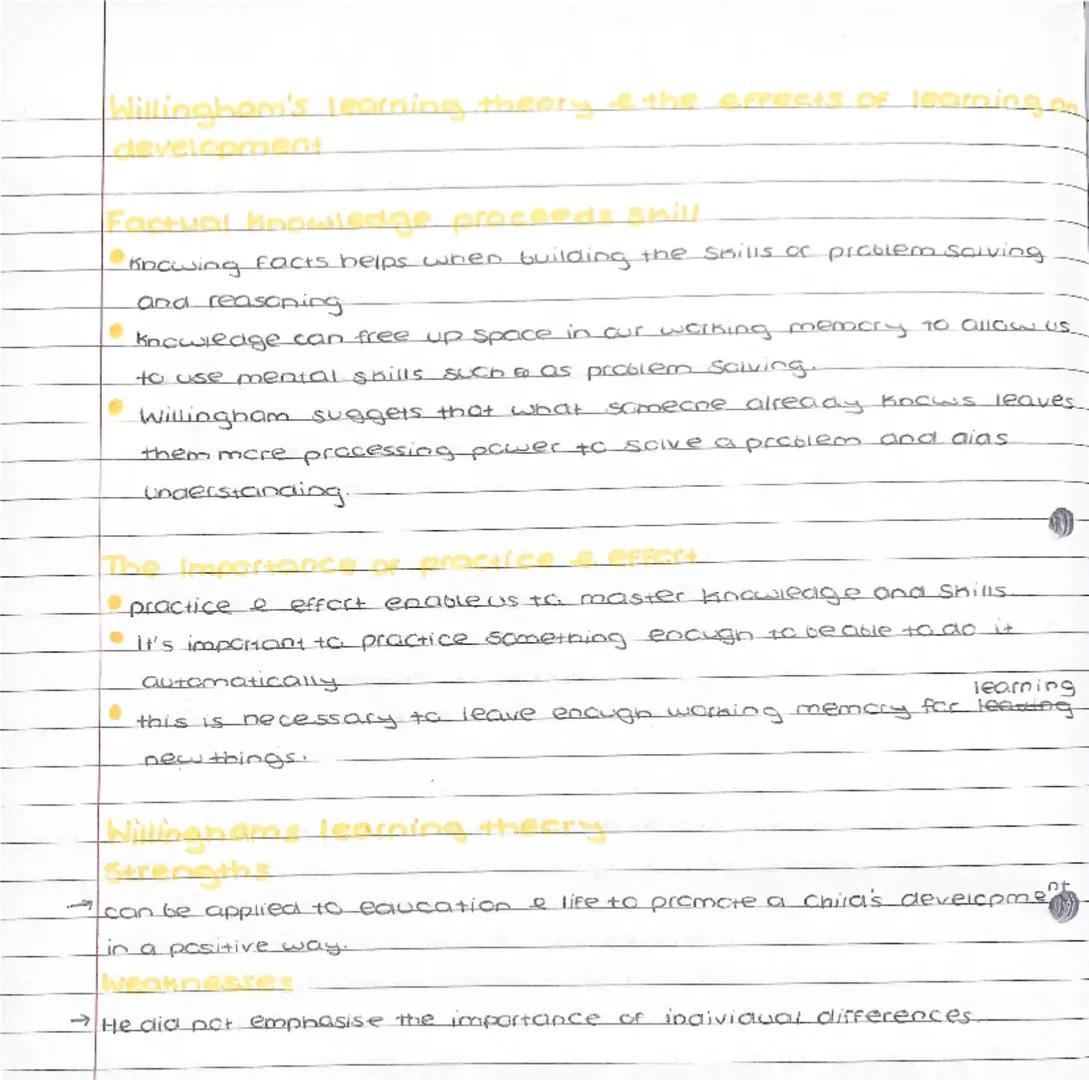 Willingham's learning theory & the effects of learning on
development
Factual knowledge proceeds skill
Knowing facts helps when building the skills of problem solving
and reasoning
Knowledge can free up space in our working memory to allow us
to use mental skills such as problem solving.
Willingham suggets that what someone already knows leaves
them more processing power to solve a problem and aids
understanding.
The importance of practice & effort
practice & effort enable us to master knowledge and skills
It's important to practice something enough to be able to do it
automatically
learning
this is necessary to leave enough working memory for
new things.
Willinghams learning theory
Strengths
→ can be applied to education & life to promote a child's development
in a positive way.
Weaknesses
→ He did not emphasise the importance of individual differences.